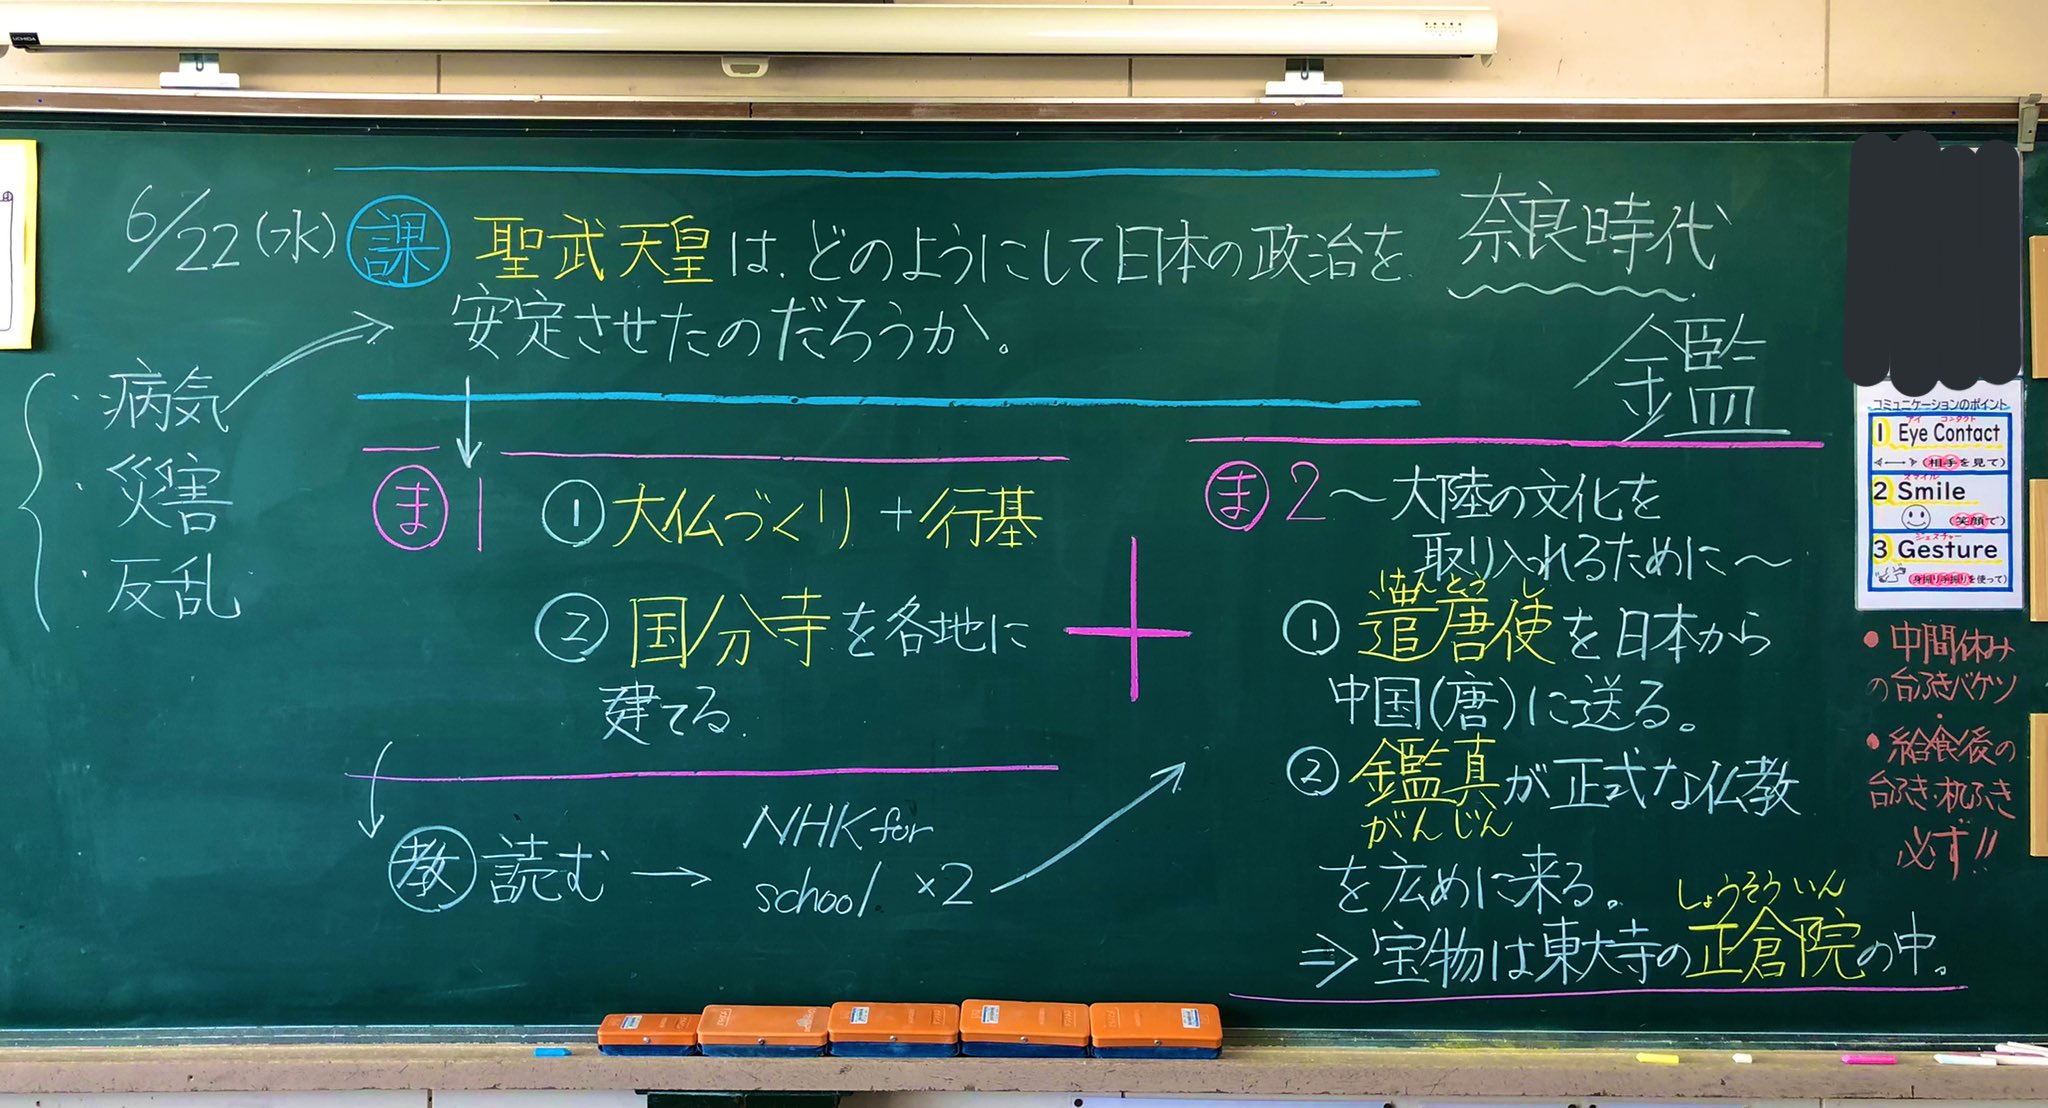 6/22(水)
課 聖武天皇は、どのようにして日本の政治を
安定させたのだろうか。
・病気
・災害
・反乱
奈良時代
鑑
ま1 ①大仏づくり+行基
②国分寺を各地に
建てる。
教 読む → NHK for
school ×2
ま2〜大陸の文化を
取り入れるために〜
けんとうし
①遣唐使を日本から
中国(唐)に送る。
②鑑真が正式な仏教
がんじん
を広めに来る。
しょうそういん
⇒宝物は東大寺の正倉院の中。
コミュニケーションのポイント
アイ コンタクト
1 Eye Contact
(相手を見て)
スマイル
2 Smile
(笑顔で)
ジェスチャー
3 Gesture
(身振り手振りを使って)
・中間休み
の台ふきバケツ
・給食後の
台ふき・机ふき
必ず!!
UCHIDA